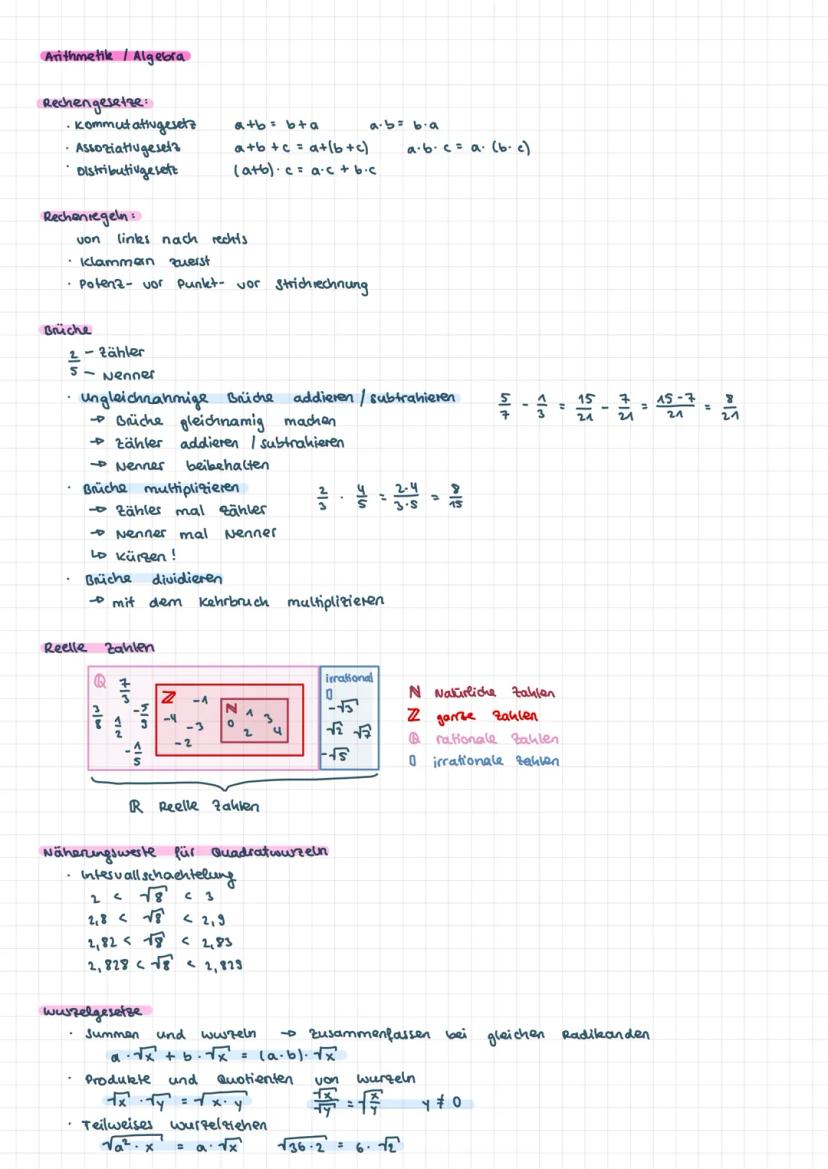 Arithmetik / Algebra
Rechengesetze:
· Kommutativgesetz a+b = b+a a·b = b·a
· Assoziativgesetz a+b+c = a+(b+c) a·b·c = a·(b·c)
· Distributivgesetz (a+b)·c = a·c + b·c
Rechenregeln:
von links nach rechts
· Klammern zuerst
· Potenz- vor Punkt- vor Strichrechnung
Brüche
2/5 – Zähler
– Nenner
· ungleichnahmige Brüche addieren / subtrahieren 5/7 - 1/3 = 15/21 - 7/21 = 15-7/21 = 8/21
→ Brüche gleichnamig machen
→ Zähler addieren / subtrahieren
→ Nenner beibehalten
· Brüche multiplizieren 2/3 · 4/5 = 2·4/3·5 = 8/15
→ Zähles mal Zähler
→ Nenner mal Nenner
↳ Kürzen!
· Brüche dividieren
→ mit dem Kehrbruch multiplizieren
Reelle Zahlen
ℚ 7/3 3/8 1/2 -5/9 -1/5
ℤ -1 -4 -3 -2
ℕ 1 3 0 2 4
irrational
𝕀
-√3
√2 √7
-√5
ℕ Natürliche Zahlen
ℤ ganze Zahlen
ℚ rationale Zahlen
𝕀 irrationale Zahlen
ℝ Reelle Zahlen
Näherungswerte für Quadratwurzeln
· Intervallschachtelung
2 < √8 < 3
2,8 < √8 < 2,9
2,82 < √8 < 2,83
2,828 < √8 < 2,829
Wurzelgesetze
· Summen und Wurzeln → Zusammenfassen bei gleichen Radikanden
a·√x + b·√x = (a·b)·√x
· Produkte und Quotienten von Wurzeln
√x · √y = √x·y √x/√y = √x/y y ≠ 0
· Teilweises Wurzelziehen
√a²·x = a·√x √36·2 = 6·√2